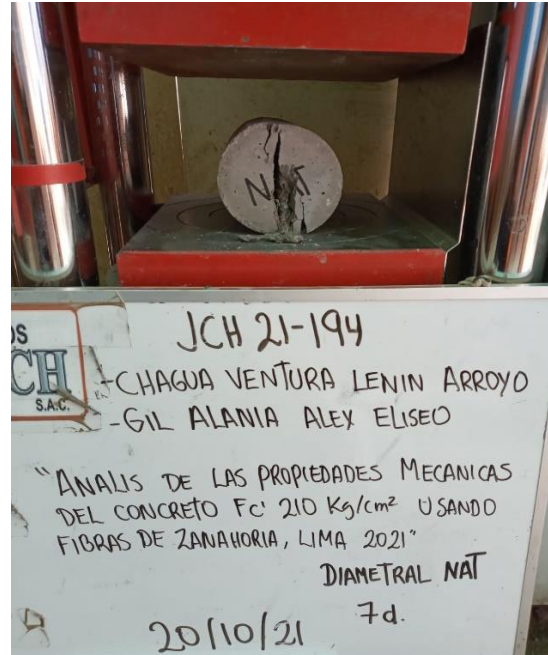 NAT
JCH 21-194
-CHAGUA VENTURA LENIN ARROYO
-GIL ALANIA ALEX ELISEO
"ANALIS DE LAS PROPIEDADES MECANICAS
DEL CONCRETO Fc' 210 Kg/cm² USANDO
FIBRAS DE ZANAHORIA, LIMA 2021"
DIAMETRAL NAT
7d.
20/10/21
OS
CH
S.A.C.